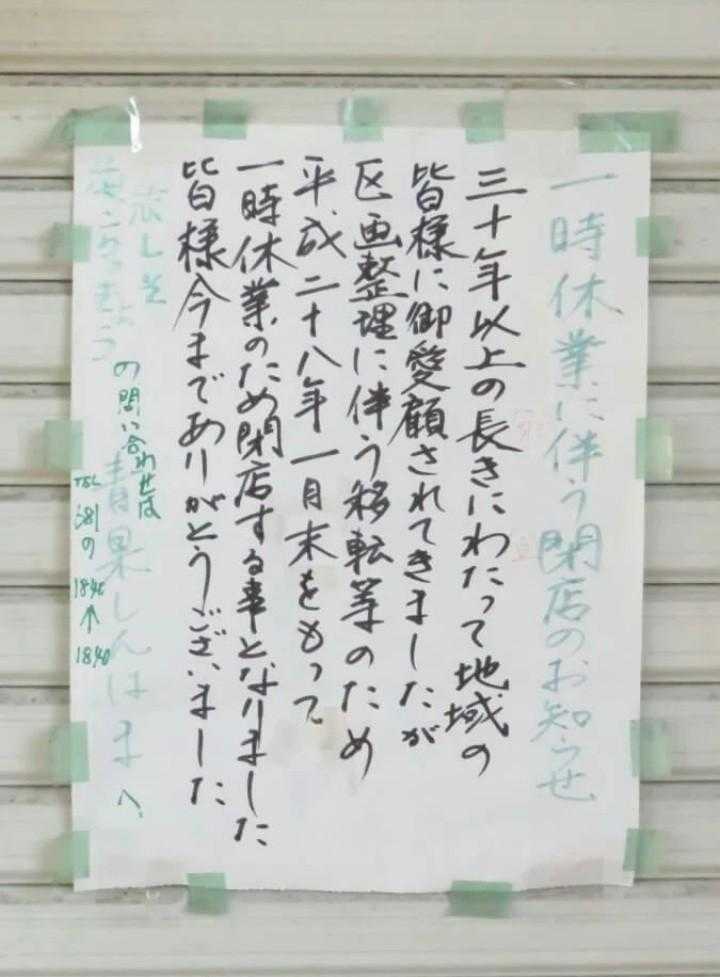 一時休業に伴う閉店のお知らせ
三十年以上の長きにわたって地域の
皆様に御愛顧されてきましたが
区画整理に伴う移転等のため
平成二十八年一月末をもって
一時休業のため閉店する事となりました
皆様今までありがとうございました
青果しんはま
の問い合わせは
へ
TEL
681の
1840
↑
1840